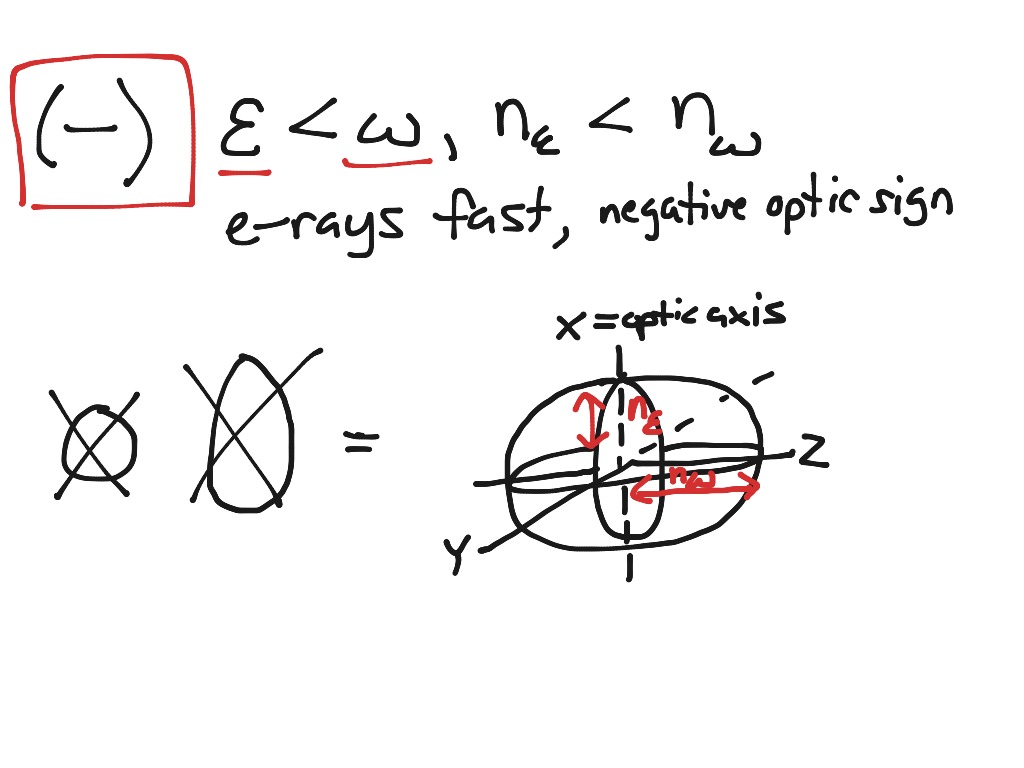 (-) ε < ω, nε < nω
e-rays fast, negative optic sign
X = optic axis
nε
= Z
nω
Y